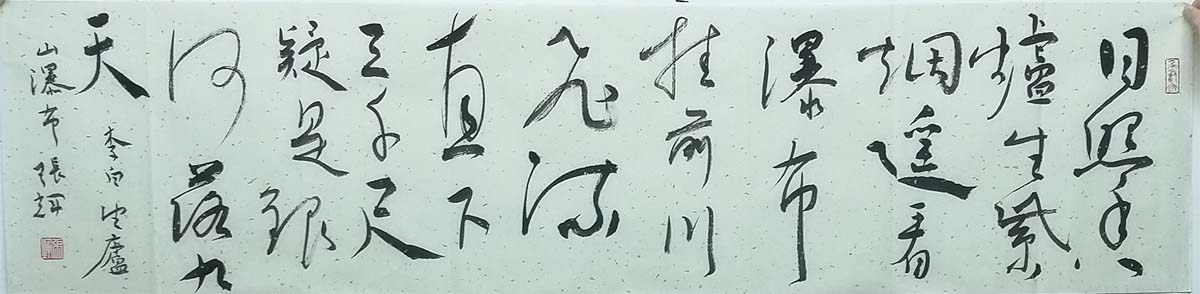 日照香
爐生紫
烟遥看
瀑布
挂前川
飛流
直下
三千尺
疑是銀
河落九
天
李白望廬
山瀑布張